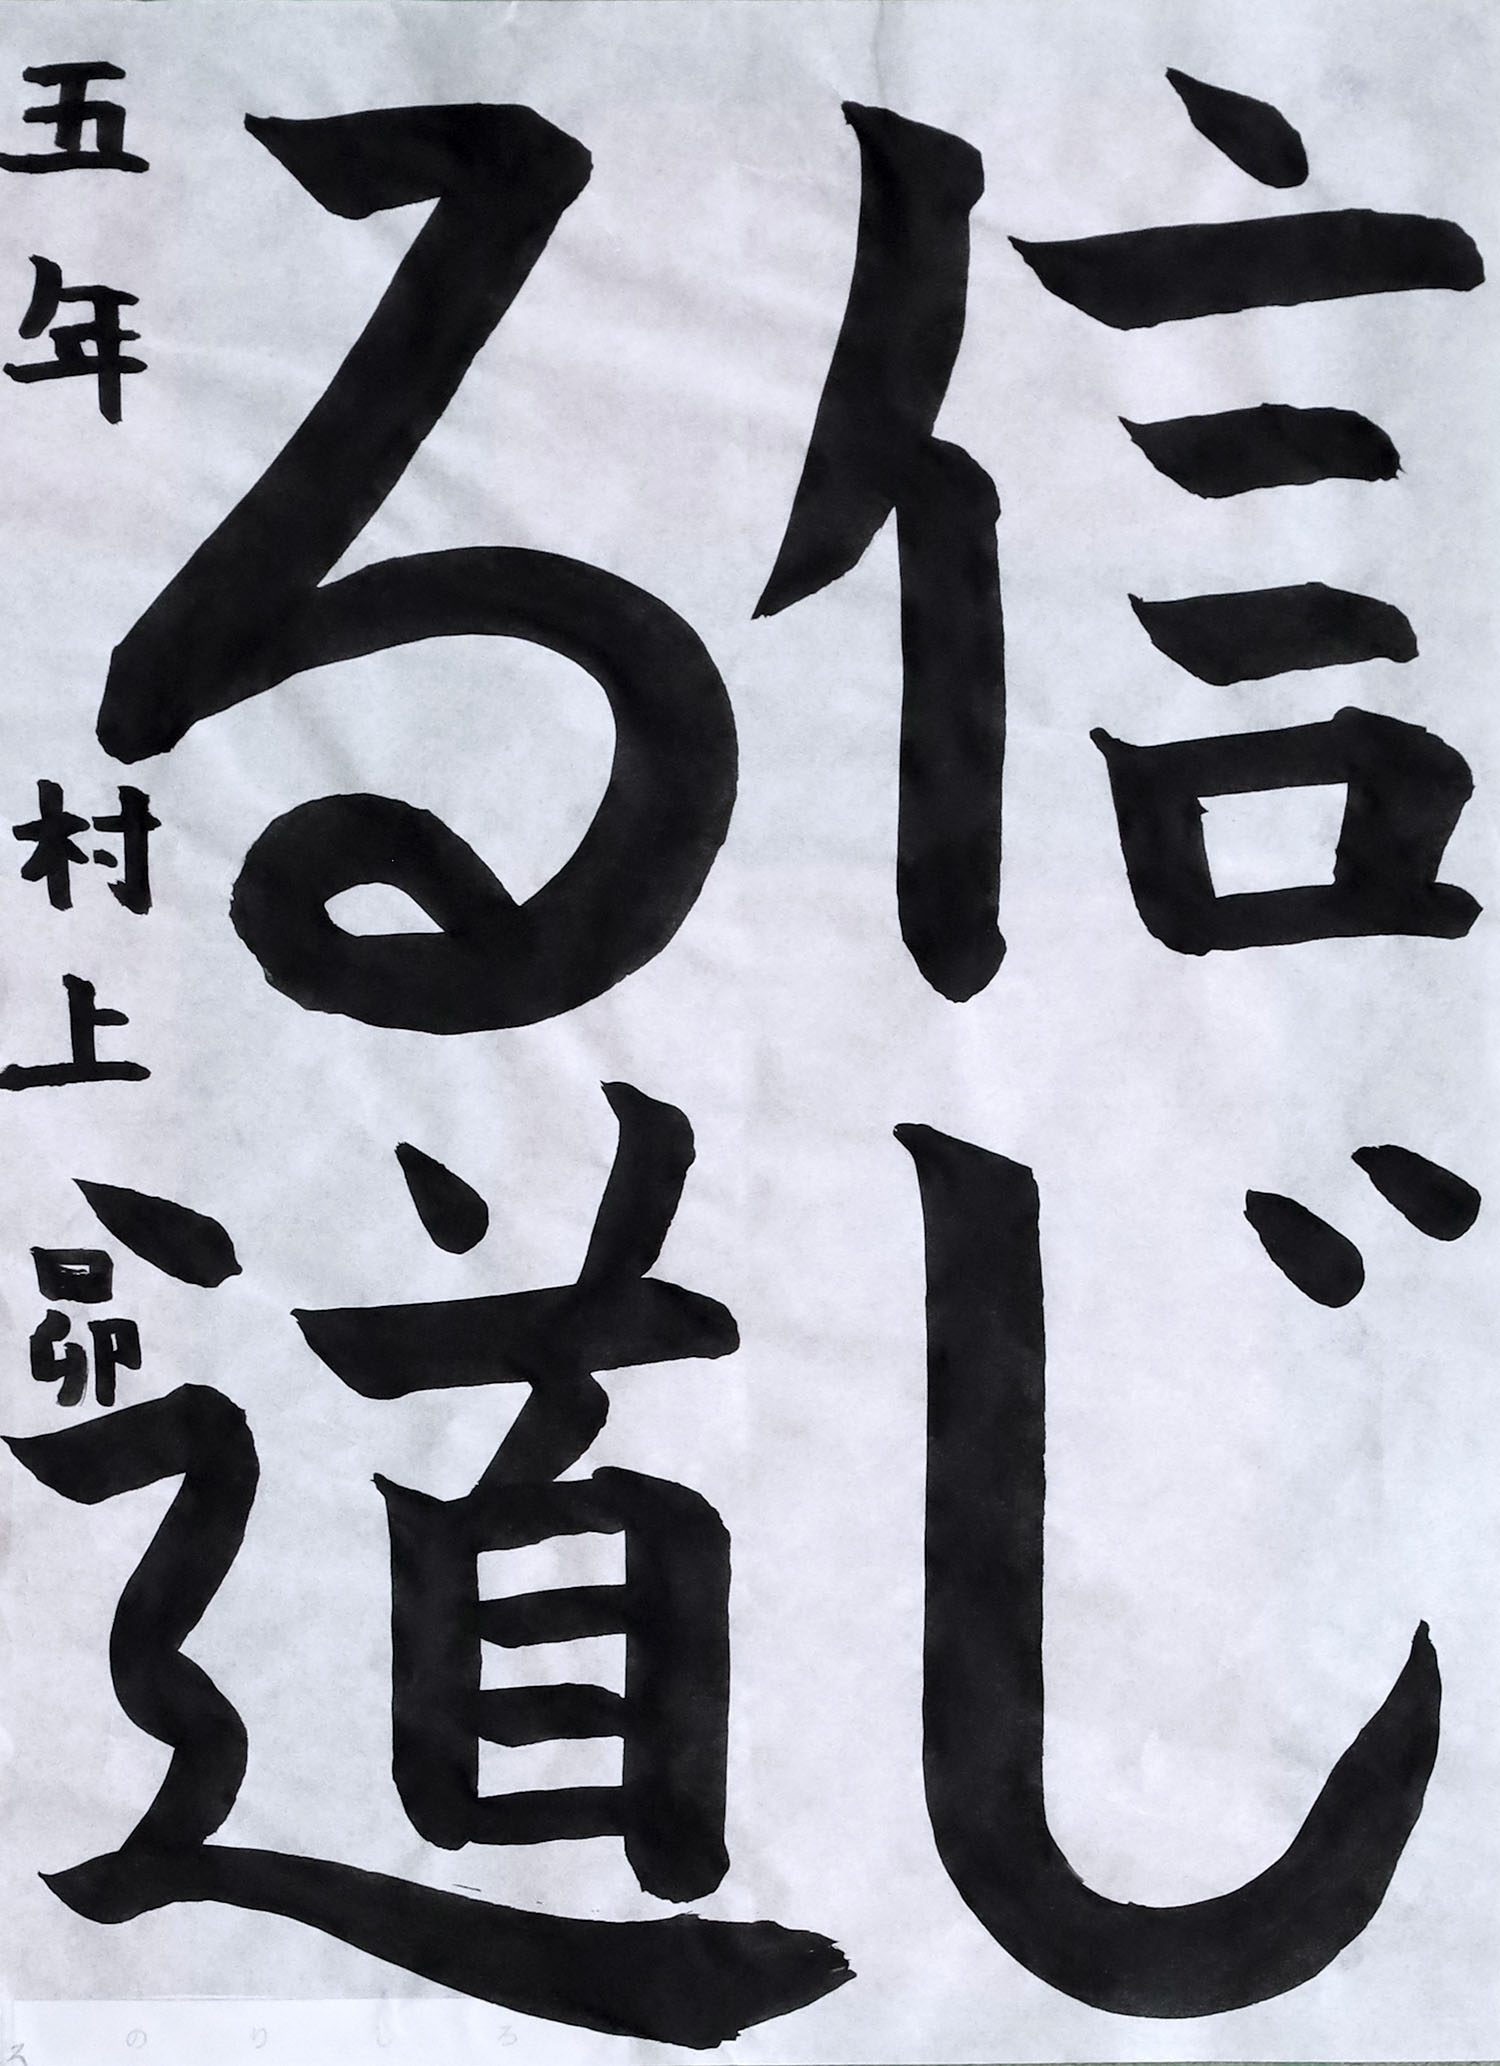 信じ
る道
五年 村上 昴
のりしろ